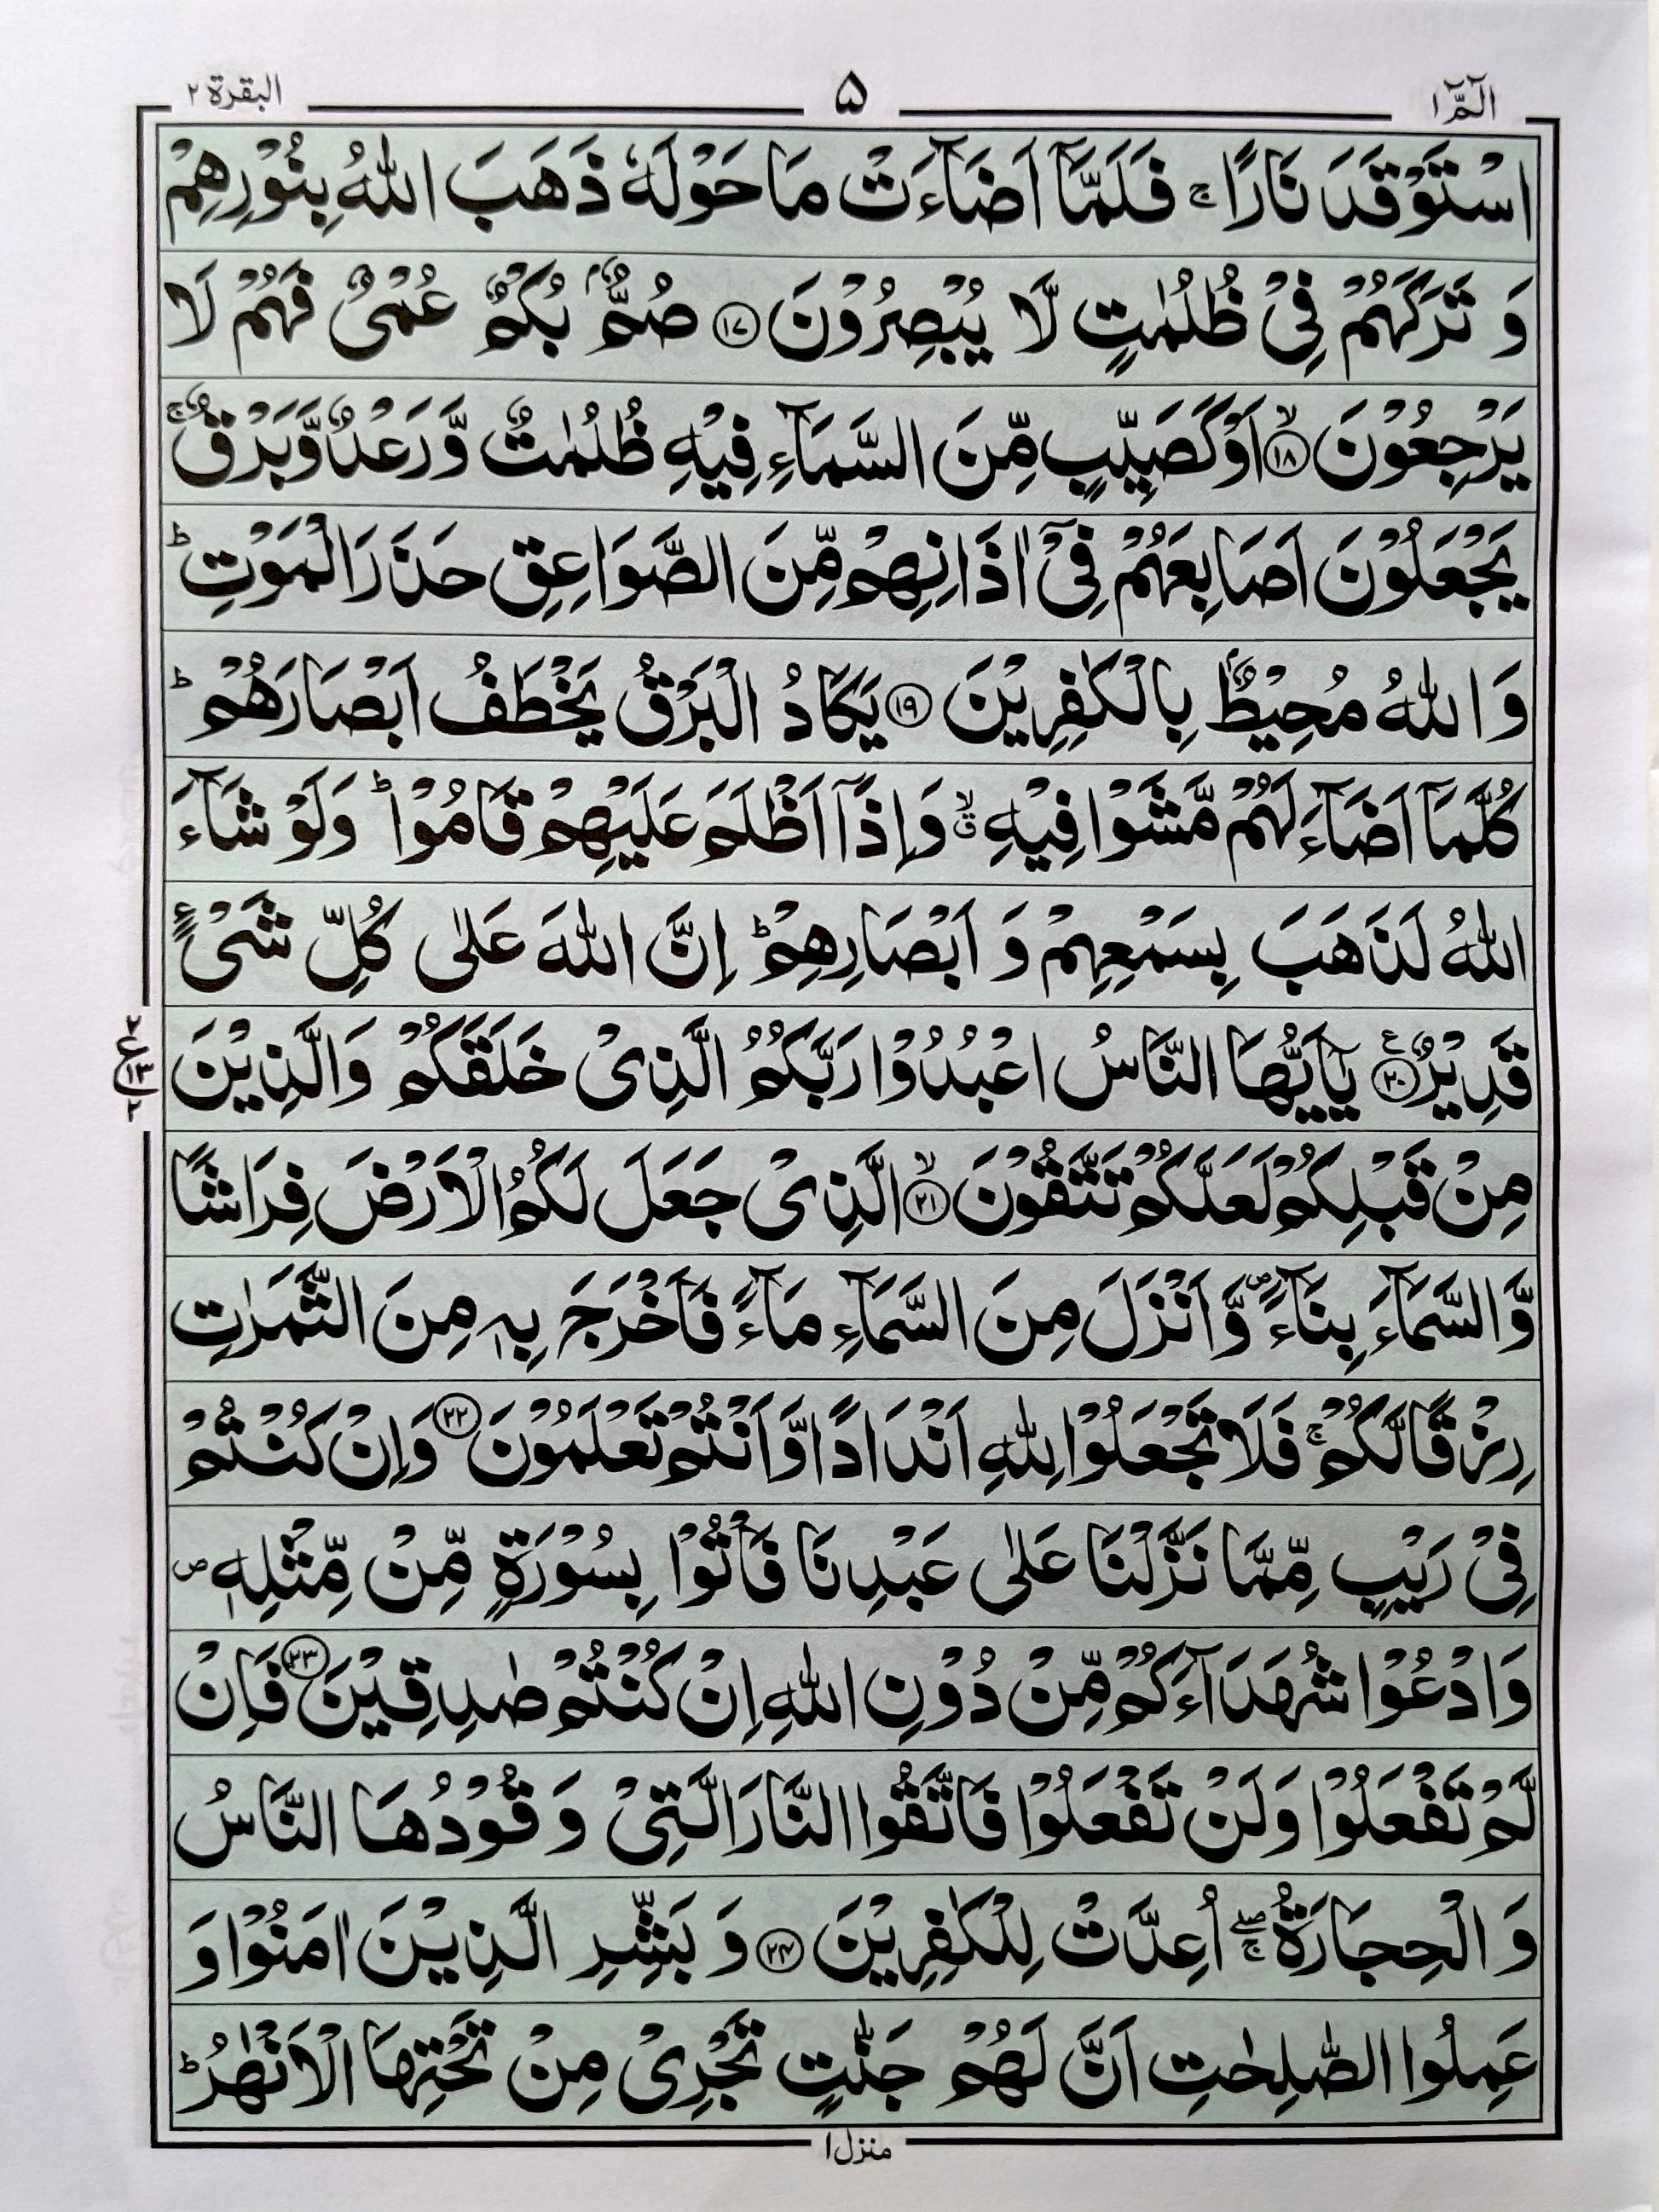 الٓمّٓ ١
۵
البقرة ٢
اسْتَوْقَدَ نَارًا ۚ فَلَمَّاۤ اَضَآءَتْ مَا حَوْلَهٗ ذَهَبَ اللّٰهُ بِنُوْرِهِمْ
وَ تَرَكَهُمْ فِیْ ظُلُمٰتٍ لَّا یُبْصِرُوْنَ ﴿۱۷﴾ صُمٌّۢ بُكْمٌ عُمْیٌ فَهُمْ لَا
یَرْجِعُوْنَ ﴿۱۸﴾ۙ اَوْ كَصَیِّبٍ مِّنَ السَّمَآءِ فِیْهِ ظُلُمٰتٌ وَّ رَعْدٌ وَّ بَرْقٌ ۚ
یَجْعَلُوْنَ اَصَابِعَهُمْ فِیْۤ اٰذَانِهِمْ مِّنَ الصَّوَاعِقِ حَذَرَ الْمَوْتِ ؕ
وَ اللّٰهُ مُحِیْطٌۢ بِالْكٰفِرِیْنَ ﴿۱۹﴾ یَكَادُ الْبَرْقُ یَخْطَفُ اَبْصَارَهُمْ ؕ
كُلَّمَاۤ اَضَآءَ لَهُمْ مَّشَوْا فِیْهِ ۙۗ وَ اِذَاۤ اَظْلَمَ عَلَیْهِمْ قَامُوْا ؕ وَ لَوْ شَآءَ
اللّٰهُ لَذَهَبَ بِسَمْعِهِمْ وَ اَبْصَارِهِمْ ؕ اِنَّ اللّٰهَ عَلٰی كُلِّ شَیْءٍ
قَدِیْرٌ ﴿۲۰﴾ع یٰۤاَیُّهَا النَّاسُ اعْبُدُوْا رَبَّكُمُ الَّذِیْ خَلَقَكُمْ وَ الَّذِیْنَ
٢
ع
١٣
٢
مِنْ قَبْلِكُمْ لَعَلَّكُمْ تَتَّقُوْنَ ﴿۲۱﴾ۙ الَّذِیْ جَعَلَ لَكُمُ الْاَرْضَ فِرَاشًا
وَّ السَّمَآءَ بِنَآءً ۪ وَّ اَنْزَلَ مِنَ السَّمَآءِ مَآءً فَاَخْرَجَ بِهٖ مِنَ الثَّمَرٰتِ
رِزْقًا لَّكُمْ ۚ فَلَا تَجْعَلُوْا لِلّٰهِ اَنْدَادًا وَّ اَنْتُمْ تَعْلَمُوْنَ ﴿۲۲﴾ وَ اِنْ كُنْتُمْ
فِیْ رَیْبٍ مِّمَّا نَزَّلْنَا عَلٰی عَبْدِنَا فَاْتُوْا بِسُوْرَةٍ مِّنْ مِّثْلِهٖ ص
وَ ادْعُوْا شُهَدَآءَكُمْ مِّنْ دُوْنِ اللّٰهِ اِنْ كُنْتُمْ صٰدِقِیْنَ ﴿۲۳﴾ فَاِنْ
لَّمْ تَفْعَلُوْا وَ لَنْ تَفْعَلُوْا فَاتَّقُوا النَّارَ الَّتِیْ وَ قُوْدُهَا النَّاسُ
وَ الْحِجَارَةُ ۖۚ اُعِدَّتْ لِلْكٰفِرِیْنَ ﴿۲۴﴾ وَ بَشِّرِ الَّذِیْنَ اٰمَنُوْا وَ
عَمِلُوا الصّٰلِحٰتِ اَنَّ لَهُمْ جَنّٰتٍ تَجْرِیْ مِنْ تَحْتِهَا الْاَنْهٰرُ ؕ
منزل ١